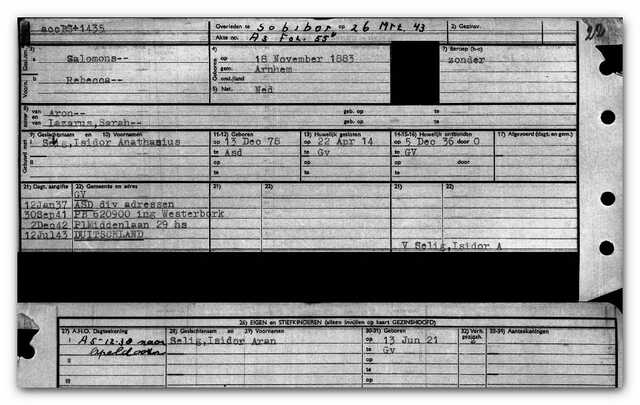 accPS+1435
Overleden te Sobibor op 26 Mrt. 43
Akte no. A5 Fol. 55v
2) Gezinsv.
22
3) Salomons--
Rebecca--
4) op 18 November 1883
gem. Arnhem
onst./land
5) Nat. Ned
7) Beroep (h-o)
zonder
van Aron-- geb. op te
en van Lazarus, Sarah-- geb. op te
9) Geslachtsnaam en 10) Voornamen
11-12) Geboren
13) Huwelijk gesloten
14-15-16) Huwelijk ontbonden
17) Afgevoerd (dagt. en gem.)
Gehuwd met
1 Selig, Isidor Anathasius op 13 Dec 78 op 22 Apr 14 op 5 Dec 36 door O
te Asd te Gv te GV
op op op door
te te te
21) Dagt. aangifte 22) Gemeente en adres 21) 22) 21) 22)
GV
12Jan37 ASD div adressen
30Sep41 PB 620900 ing Westerbork
2Dec42 PlMiddenlaan 29 hs
12Jul43 DUITSCHLAND
V Selig, Isidor A
26) EIGEN en STIEFKINDEREN (alleen invullen op kaart GEZINSHOOFD)
27) A.H.O. Dagtekening 28) Geslachtsnaam en 29) Voornamen 30-31) Geboren 32) Verh. 33-39) Aantekeningen
I A 5-12-38 naar Selig, Isidor Aran op 13 Jun 21
Apeldoorn te Gv
II op
te
III op